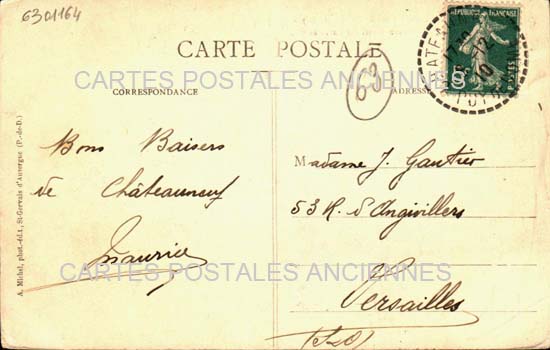 6301164
CARTE POSTALE
RÉPUBLIQUE FRANÇAISE
CARTES POSTALES ANCIENNES
CORRESPONDANCE
63
ADRESSE
Bons Baisers
de Châteauneuf
Maurice
Madame J. Gautier
53 R. d'Angivillers
Versailles
(S&O)
CARTES POSTALES ANCIENNES
A. Michel, phot.-édit., St-Gervais d'Auvergne (P.-de-D.)